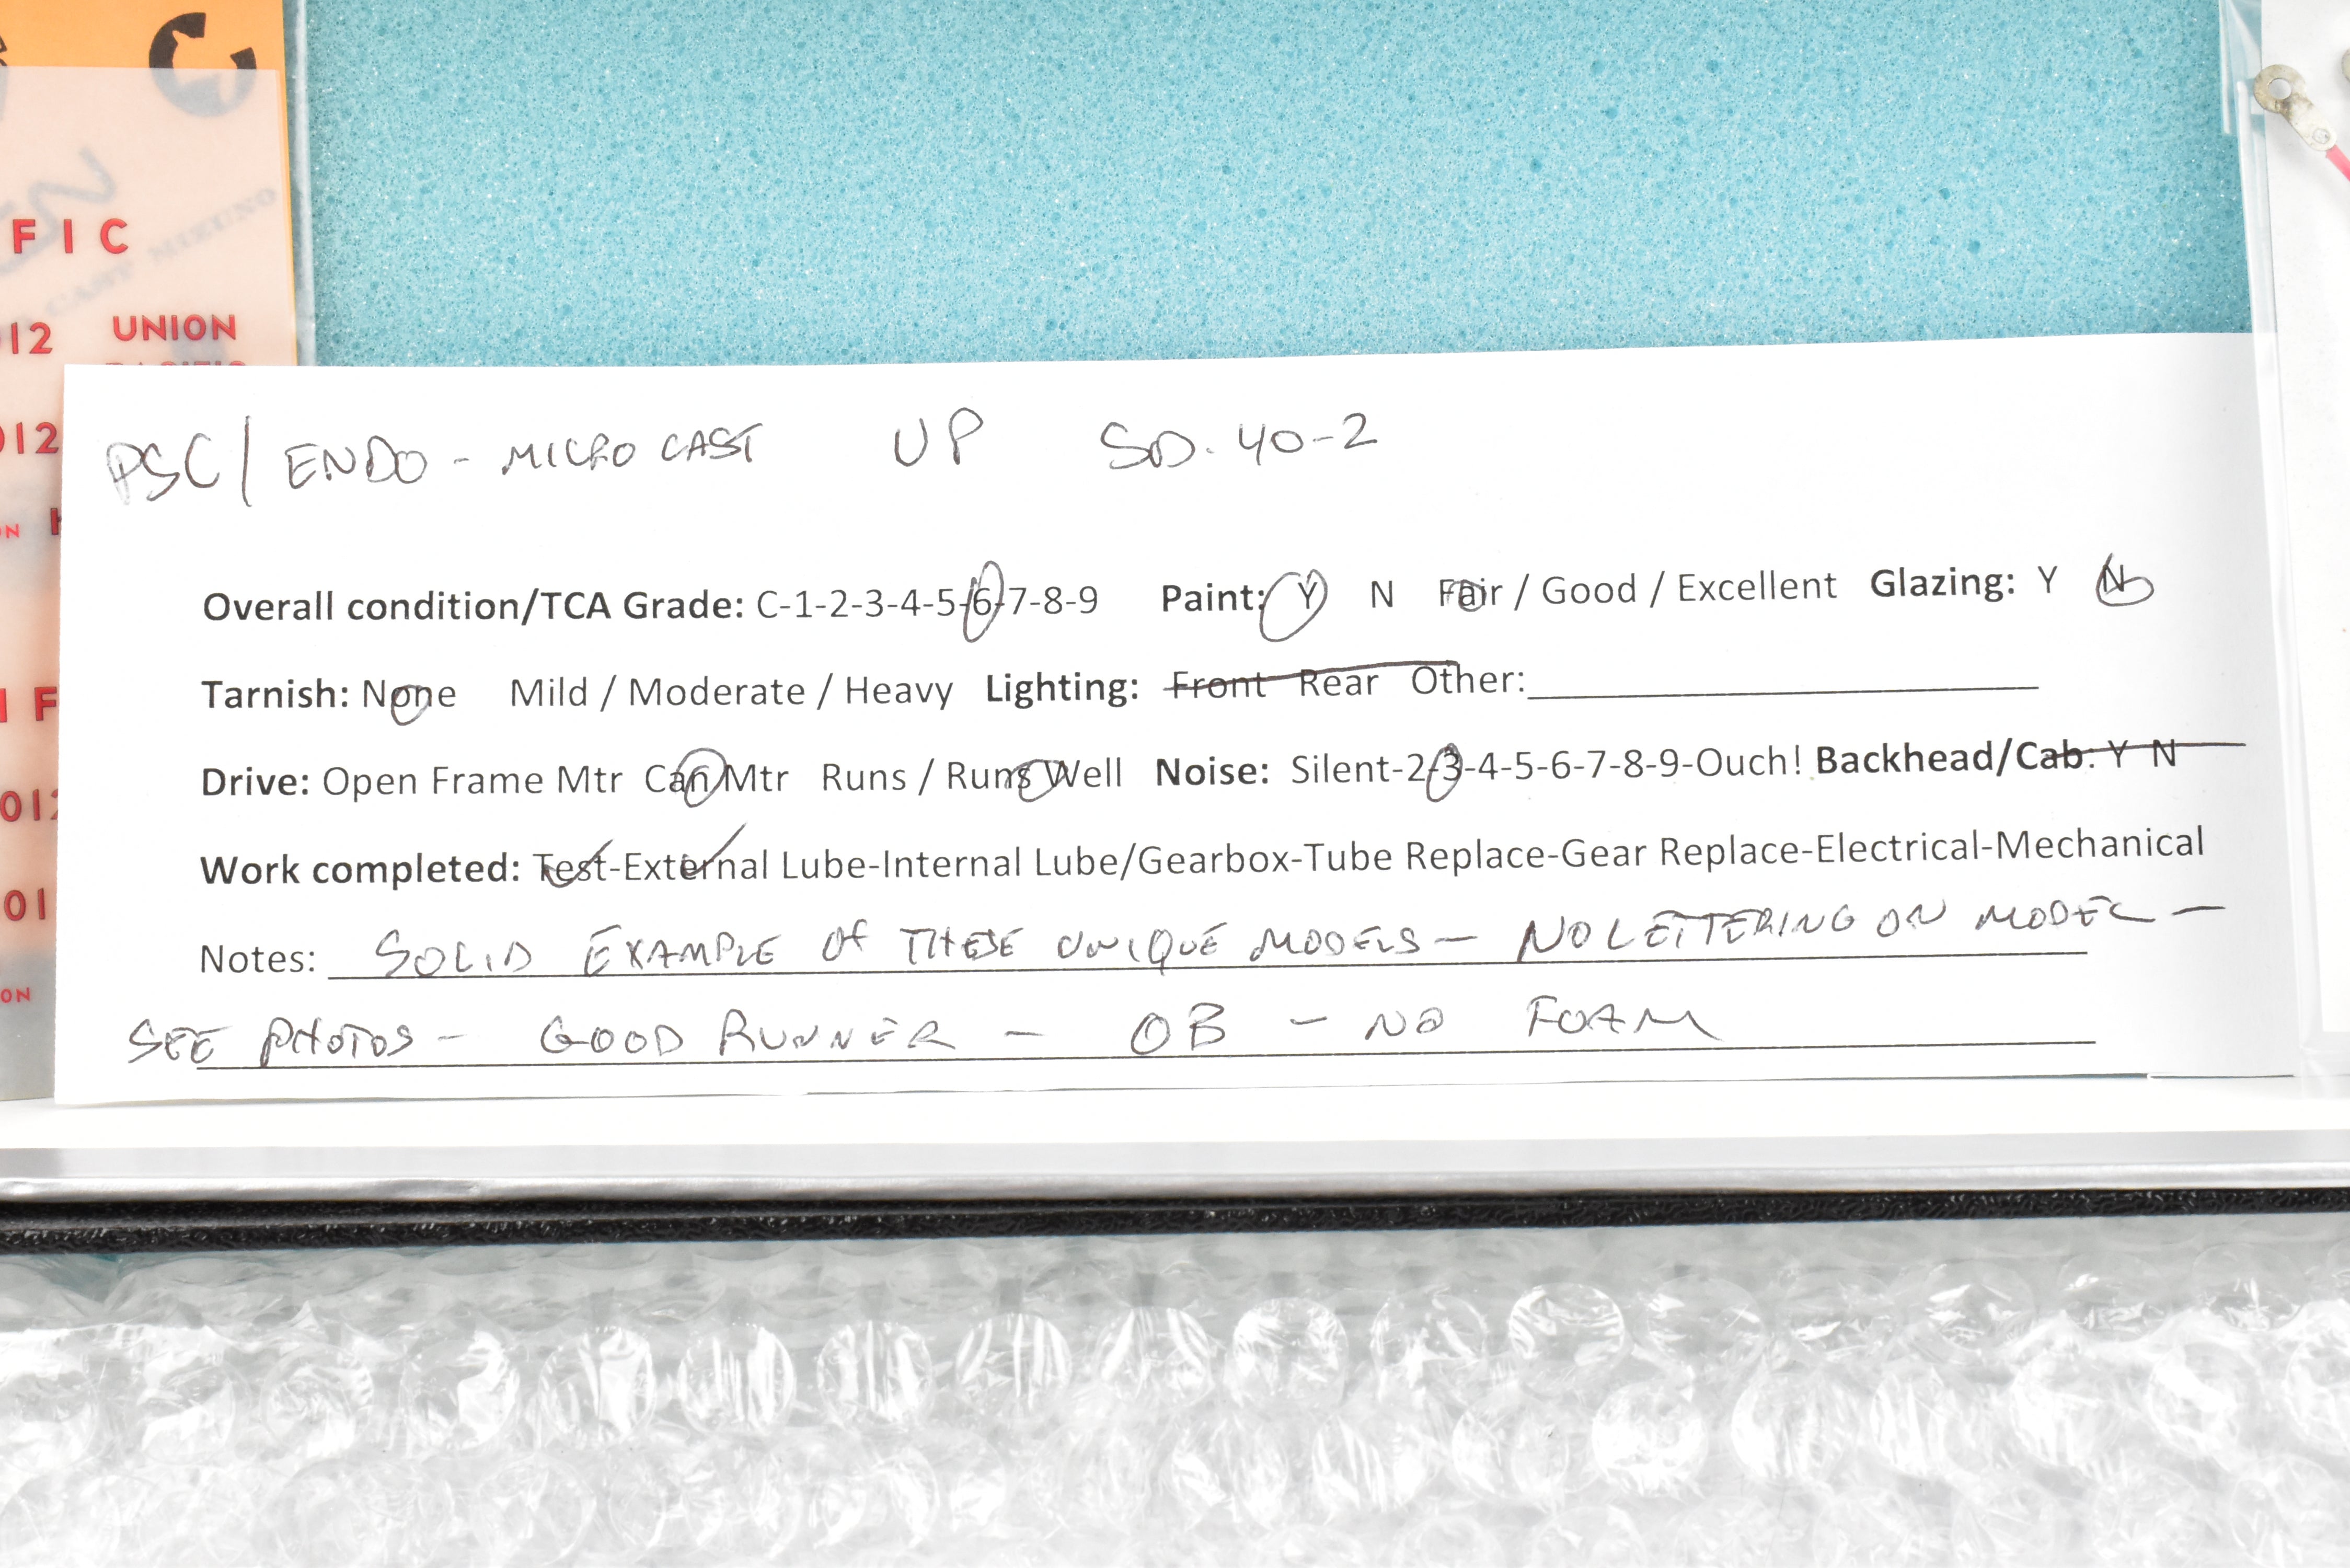 FIC
CAST MIZUNO
012 UNION
012
ON
PSC/ENDO - MICRO CAST UP SD.40-2
Overall condition/TCA Grade: C-1-2-3-4-5-6-7-8-9 Paint: Y N Fair / Good / Excellent Glazing: Y N
Tarnish: None Mild / Moderate / Heavy Lighting: Front Rear Other:
Drive: Open Frame Mtr Can Mtr Runs / Runs Well Noise: Silent-2-3-4-5-6-7-8-9-Ouch! Backhead/Cab: Y N
Work completed: Test-External Lube-Internal Lube/Gearbox-Tube Replace-Gear Replace-Electrical-Mechanical
Notes: SOLID EXAMPLE OF THESE UNIQUE MODELS - NO LETTERING ON MODEL -
SEE PHOTOS - GOOD RUNNER - OB - NO FOAM